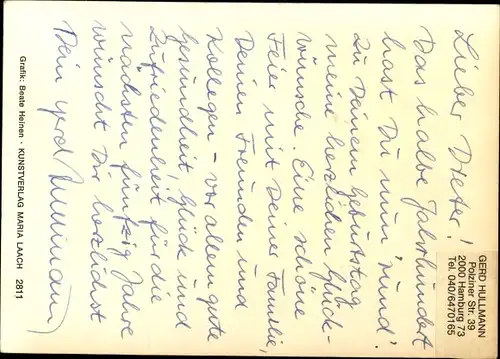 GERD HÜLLMANN
Polziner Str. 39
2000 Hamburg 73
Tel. 040/6470165
Lieber Dieter!
Das halbe Jahrhundert
hast Du nun 'rund'.
Zu Deinem Geburtstag
meine herzlichen Glück-
wünsche. Eine schöne
Feier mit Deiner Familie,
Deinen Freunden und
Kollegen - vor allem gute
Gesundheit, Glück und
Zufriedenheit für die
nächsten fünfzig Jahre
wünscht Dir herzlichst
Dein Gerd Hüllmann
Grafik: Beate Heinen · KUNSTVERLAG MARIA LAACH 2811